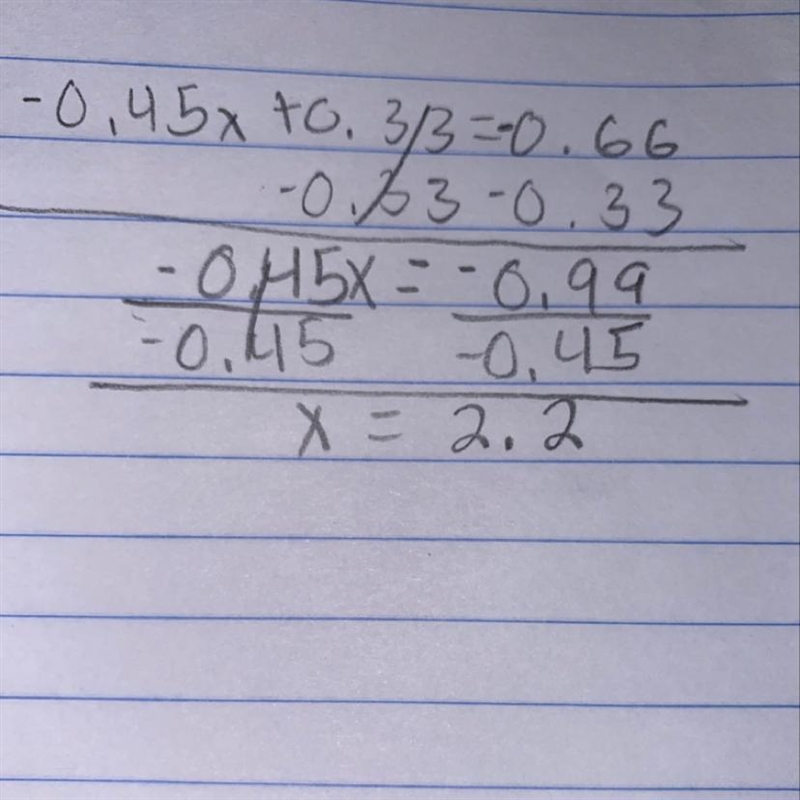 -0.45x +0.33=-0.66
-0.33 -0.33
-0.45x = -0.99
-0.45 -0.45
x = 2.2